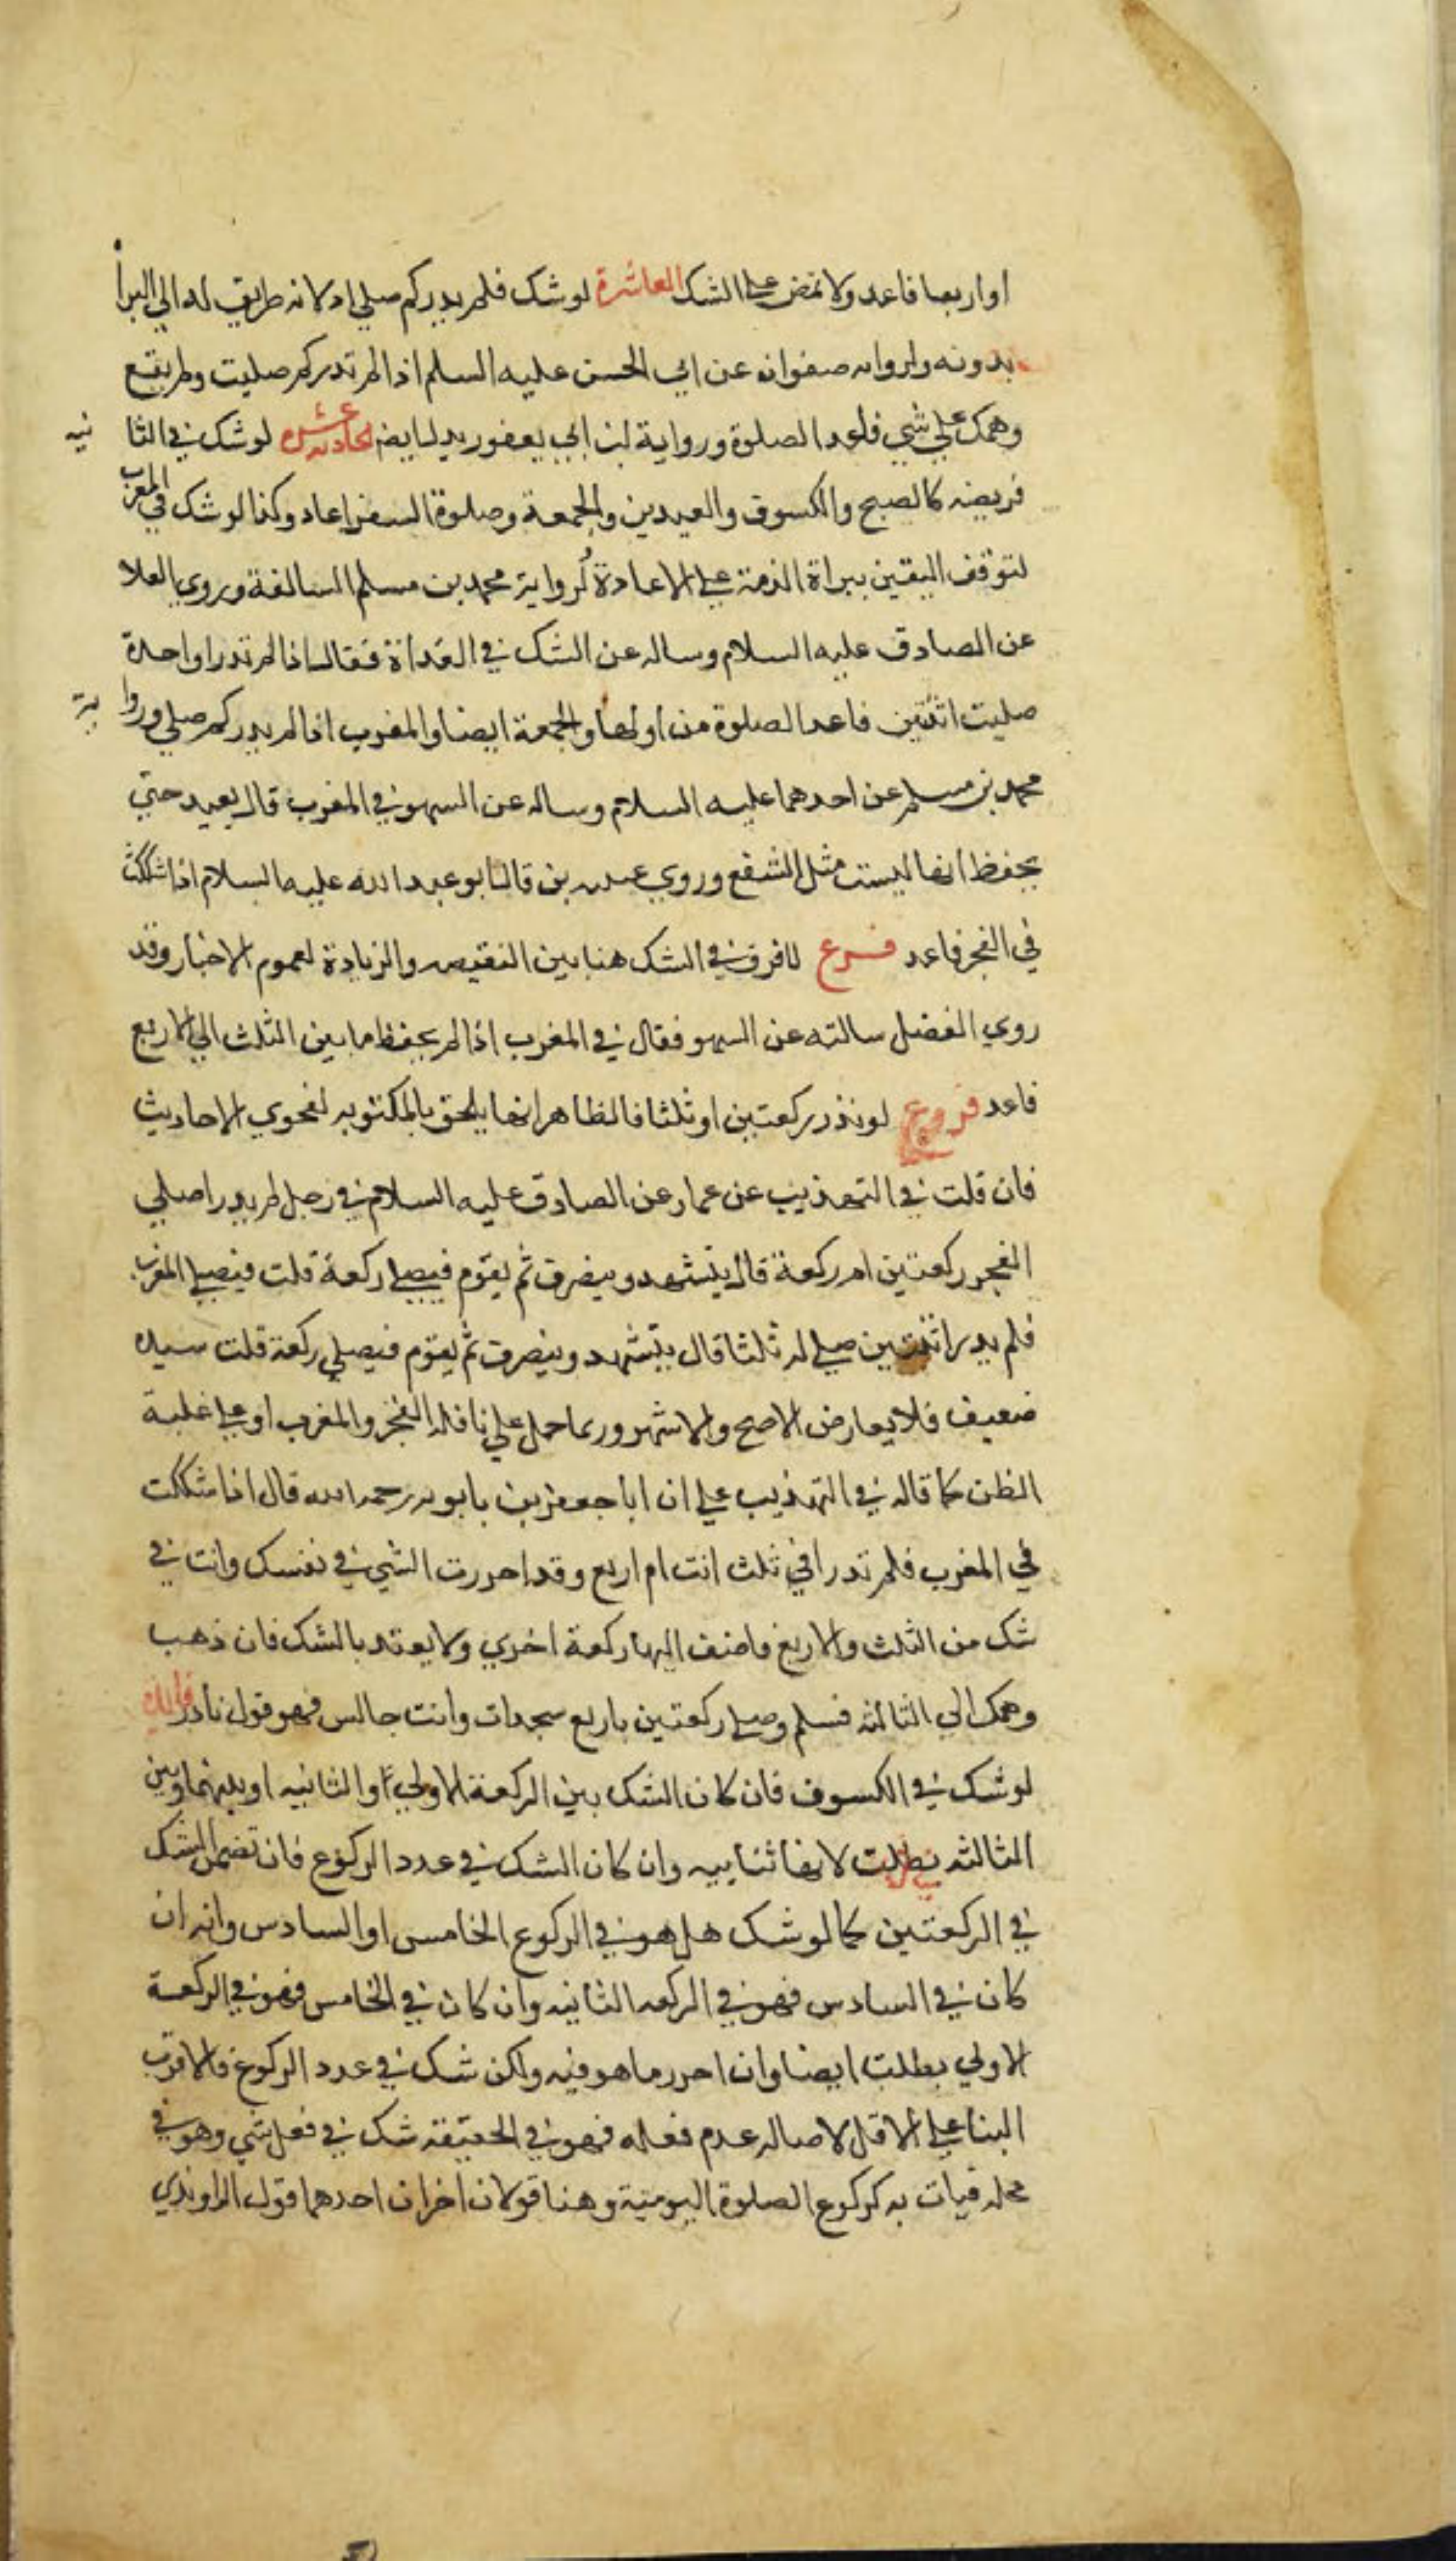 او اربعا فاعد ولا تمض على الشك العاشرة لو شك فلم يدر كم صلى اد لانه طريق له الى البرأ
بدونه ولرواىه صفوان عن ابي الحسن عليه السلم اذا لم تدر كم صليت ولم يقع
وهمك على شي فاعد الصلوة ورواية ابن ابي يعفور يدل ايضا الحادىه عشره لو شك في الثا نيه
فريضه كالصبح والكسوف والعيدين والجمعة وصلوة السفر اعاد وكذا لو شك في المغرب
لتوقف اليقين ببراة الذمة على الاعادة لرواية محمد بن مسلم السالفة وروي العلا
عن الصادق عليه السلام وساله عن الشك في الغداة فقال اذا لم تدر اواحدة
صليت ام اثنتين فاعد الصلوة من اولها والجمعة ايضا والمغرب اذا لم يدر كم صلى وروا ية
محمد بن مسلم عن احدهما عليه السلام وساله عن السهو في المغرب قال يعيد حتى
يحفظ انها ليست مثل الشفع وروي عن قال ابو عبد الله عليه السلام اذا شككت
في الفجر فاعد فرع لا فرق في الشك هنا بين النقيصه والزيادة لعموم الاخبار وقد
روي الفضل سالته عن السهو فقال في المغرب اذا لم يحفظ ما بين الثلث الى الاربع
فاعد فروع لو نذر ركعتين او ثلثا فالظاهر انها يلحق بالمكتوبه لفحوي الاحاديث
فان قلت في التهذيب عن عمار عن الصادق عليه السلام في رجل لم يدر اصلى
الفجر ركعتين ام ركعة قال يتشهد وينصرف ثم يقوم فيصلى ركعة قلت فيصلى المغرب
فلم يدر اثنتين صلى ام ثلثا قال يتشهد وينصرف ثم يقوم فيصلي ركعة قلت سنده
ضعيف فلا يعارض الاصح والاشهر وربما حمل على نافلة الفجر والمغرب او على غلبة
الظن كما قاله في التهذيب على ان ابا جعفر بن بابويه رحمه الله قال اذا شككت
في المغرب فلم تدر افي ثلث انت ام اربع وقد احررت الثني في نفسك وانت في
شك من الثلث والاربع فاضف اليها ركعة اخري ولا يعتد بالشك فان ذهب
وهمك الي الثالثه فسلم وصل ركعتين باربع سجدات وانت جالس فهو قول نادر
لو شك في الكسوف فان كان الشك بين الركعة الاولي او الثانيه او بينهما وبين
الثالثه بطلت لانها ثناييه وان كان الشك في عدد الركوع فان تضمن الشك
في الركعتين كما لو شك هل هو في الركوع الخامس او السادس وانه ان
كان في السادس فهو في الركعه الثانيه وان كان في الخامس فهو في الركعة
الاولي بطلت ايضا وان احرر ما هو فيه ولكن شك في عدد الركوع فالاقرب
البنا على الاقل لاصاله عدم فعله فهو في الحقيقه شك في فعل شي وهو في
محله فيات به كركوع الصلوة اليومية وهنا قولان اخران احدهما قول الراوندي